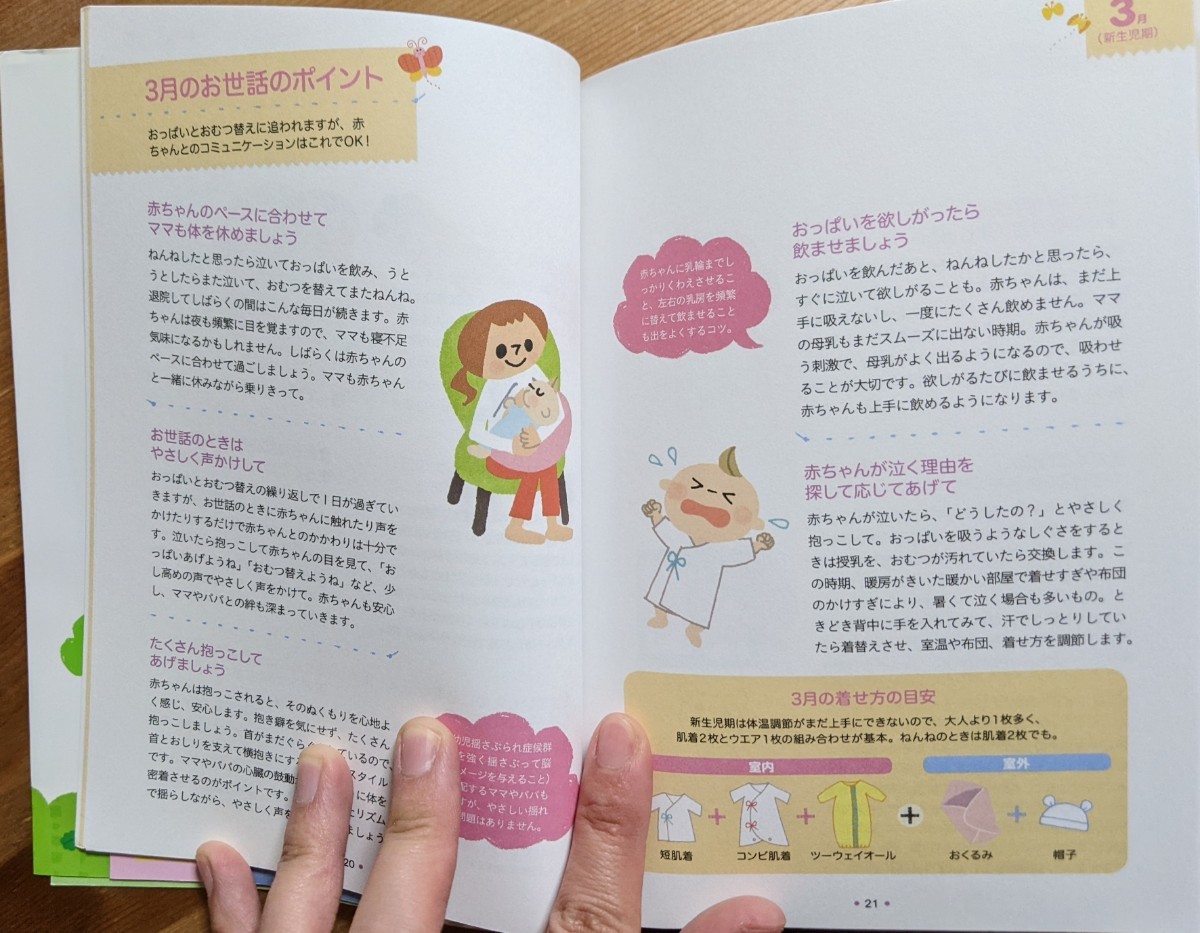 3月のお世話のポイント
おっぱいとおむつ替えに追われますが、赤
ちゃんとのコミュニケーションはこれでOK!
赤ちゃんのペースに合わせて
ママも体を休めましょう
ねんねしたと思ったら泣いておっぱいを飲み、うと
うとしたらまた泣いて、おむつを替えてまたねんね。
退院してしばらくの間はこんな毎日が続きます。赤
ちゃんは夜も頻繁に目を覚ますので、ママも寝不足
気味になるかもしれません。しばらくは赤ちゃんの
ペースに合わせて過ごしましょう。ママも赤ちゃん
と一緒に休みながら乗りきって。
お世話のときは
やさしく声かけして
おっぱいとおむつ替えの繰り返しで1日が過ぎてい
きますが、お世話のときに赤ちゃんに触れたり声を
かけたりするだけで赤ちゃんとのかかわりは十分で
す。泣いたら抱っこして赤ちゃんの目を見て、「お
っぱいあげようね」「おむつ替えようね」など、少
し高めの声でやさしく声をかけて。赤ちゃんも安心
し、ママやパパとの絆も深まっていきます。
たくさん抱っこして
あげましょう
赤ちゃんは抱っこされると、そのぬくもりを心地よ
く感じ、安心します。抱き癖を気にせず、たくさん
抱っこしましょう。首がまだぐら ているので、
首とおしりを支えて横抱きにす スタイル
です。ママやパパの心臓の鼓動 に体を
密着させるのがポイントです。 たリズム
で揺らしながら、やさしく声を ましょう
幼児揺さぶられ症候群
を強く揺さぶって脳
メージを与えること)
配するママやパパも
すが、やさしい揺れ
問題はありません。
20
3月
(新生児期)
赤ちゃんに乳輪までし
っかりくわえさせるこ
と、左右の乳房を頻繁
に替えて飲ませること
も出をよくするコツ。
おっぱいを欲しがったら
飲ませましょう
おっぱいを飲んだあと、ねんねしたかと思ったら、
すぐに泣いて欲しがることも。赤ちゃんは、まだ上
手に吸えないし、一度にたくさん飲めません。ママ
の母乳もまだスムーズに出ない時期。赤ちゃんが吸
う刺激で、母乳がよく出るようになるので、吸わせ
ることが大切です。欲しがるたびに飲ませるうちに、
赤ちゃんも上手に飲めるようになります。
赤ちゃんが泣く理由を
探して応じてあげて
赤ちゃんが泣いたら、「どうしたの?」とやさしく
抱っこして。おっぱいを吸うようなしぐさをすると
きは授乳を、おむつが汚れていたら交換します。こ
の時期、暖房がきいた暖かい部屋で着せすぎや布団
のかけすぎにより、暑くて泣く場合も多いもの。と
きどき背中に手を入れてみて、汗でしっとりしてい
たら着替えさせ、室温や布団、着せ方を調節します。
3月の着せ方の目安
新生児期は体温調節がまだ上手にできないので、大人より1枚多く、
肌着2枚とウエア1枚の組み合わせが基本。ねんねのときは肌着2枚でも。
室内
室外
短肌着 + コンビ肌着 + ツーウェイオール + おくるみ + 帽子
21